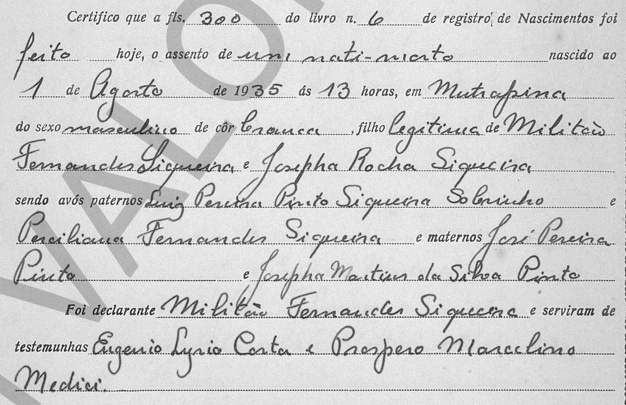 Certifico que a fls. 300 do livro n. 6 de registro de Nascimentos foi
feito hoje, o assento de um nati-morto nascido ao
1 de Agosto de 1935 ás 13 horas, em Mutrapina
do sexo masculino de côr branca, filho legitima de Militão
Fernandes Siqueira e Josepha Rocha Siqueira
sendo avós paternos Luiz Pereira Pinto Siqueira Sobrinho e
Perciliana Fernandes Siqueira e maternos José Pereira
Pinto e Josepha Martins da Silva Pinto
Foi declarante Militão Fernandes Siqueira e serviram de
testemunhas Eugenio Lyrio Costa e Prospero Marcelino
Medici.
VALO